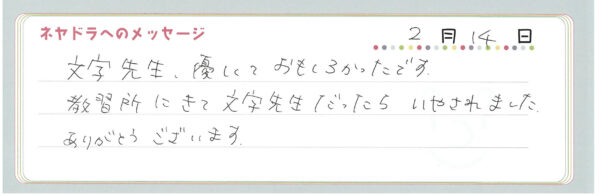 ネヤドラへのメッセージ
2月14日
文字先生、優しくて おもしろかったです。
教習所にきて文字先生だったら いやされました。
ありがとうございます。